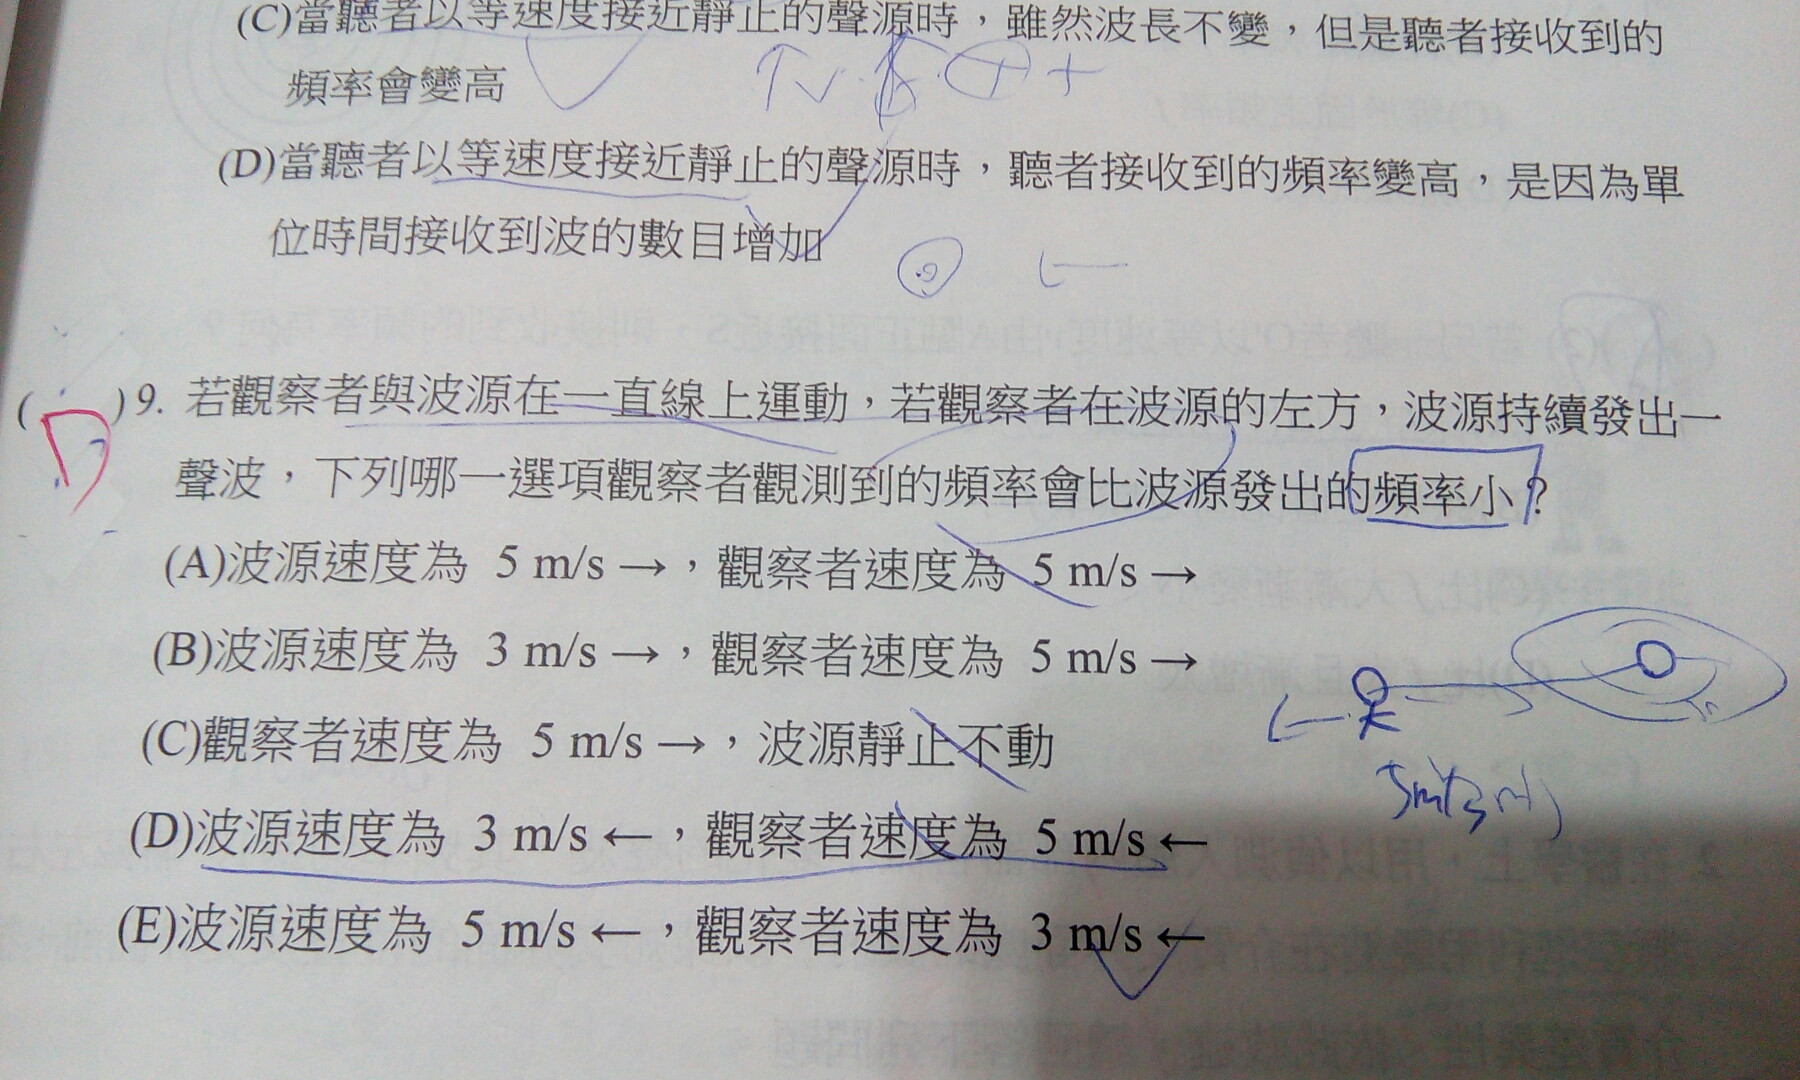 (C)當聽者以等速度接近靜止的聲源時，雖然波長不變，但是聽者接收到的
頻率會變高
(D)當聽者以等速度接近靜止的聲源時，聽者接收到的頻率變高，是因為單
位時間接收到波的數目增加
( D )9. 若觀察者與波源在一直線上運動，若觀察者在波源的左方，波源持續發出一
聲波，下列哪一選項觀察者觀測到的頻率會比波源發出的頻率小？
(A)波源速度為 5 m/s →，觀察者速度為 5 m/s →
(B)波源速度為 3 m/s →，觀察者速度為 5 m/s →
(C)觀察者速度為 5 m/s →，波源靜止不動
(D)波源速度為 3 m/s ←，觀察者速度為 5 m/s ←
(E)波源速度為 5 m/s ←，觀察者速度為 3 m/s ←